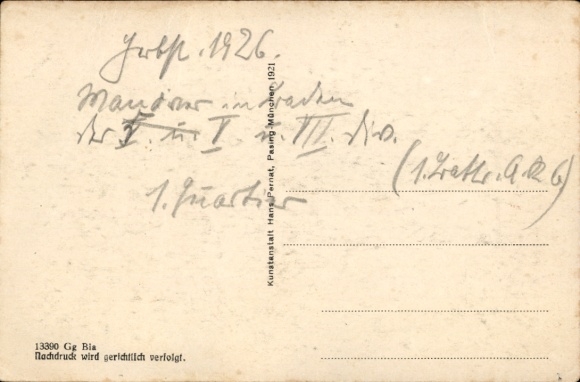 Herbst. 1926.
Manöver in Baden
der V. u. V. u. III. Div.
(1. Battr. A.R. 6)
1. Quartier
Kunstanstalt Hans Pernat, Pasing-München 1921
13390 Gg Bia
Nachdruck wird gerichtlich verfolgt.